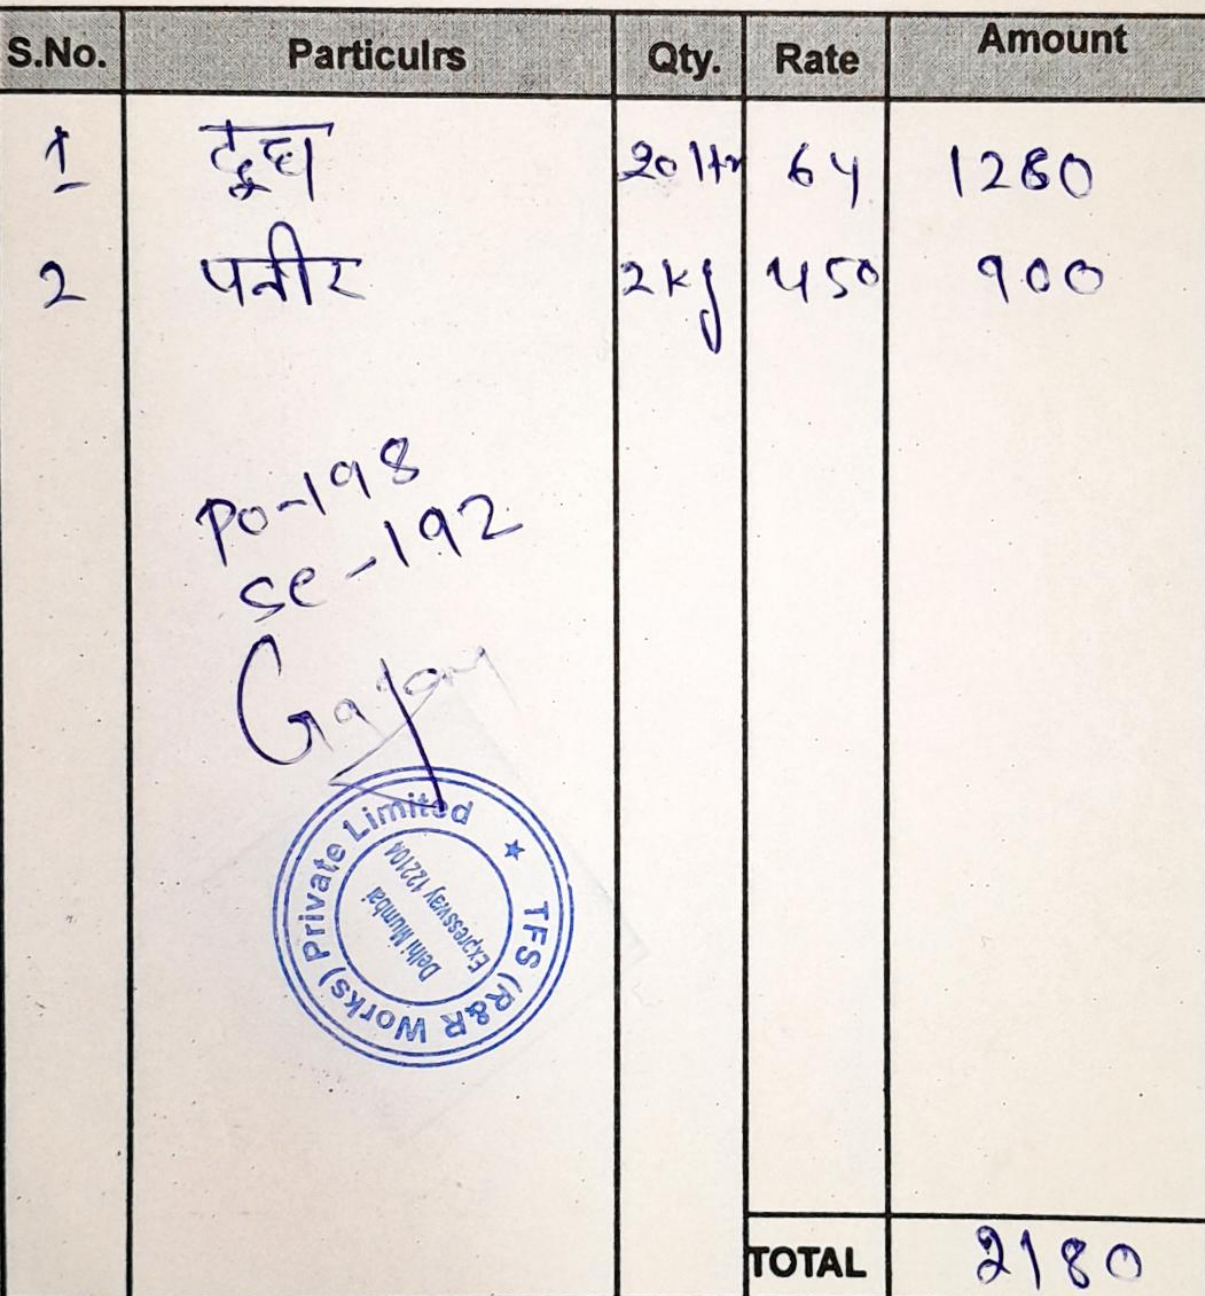 S.No. Particulrs Qty. Rate Amount
1 दूध 20 ltr 64 1280
2 पनीर 2 kg 450 900
PO-198
se-192
TFS (R&R Works) Private Limited
Delhi Mumbai
Expressway 122104
TOTAL 2180